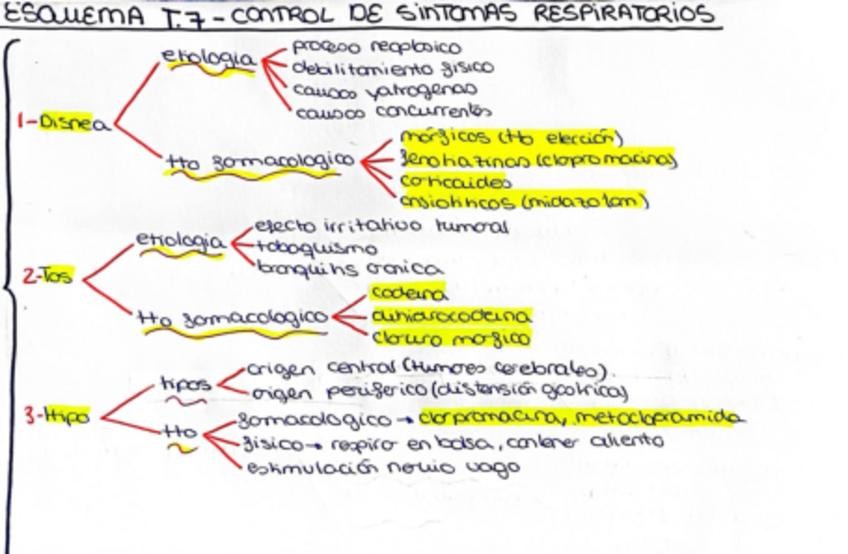 ESQUEMA T.7 - CONTROL DE SINTOMAS RESPIRATORIOS
1-Disnea
etiologia
proceso neoplasico
debilitamiento fisico
causas yatrogenas
causas concurrentes
tto farmacologico
mórficos (tto elección)
fenotiazinas (clopromacina)
corticoides
ansioliticos (midazolam)
2-Tos
etiologia
efecto irritativo tumoral
tabaquismo
bronquitis cronica
tto farmacologico
codeina
dihidrocodeina
cloruro morfico
3-Hipo
tipos
origen central (tumores cerebrales)
origen periferico (distensión gastrica)
tto
farmacologico → clorpromacina, metoclopramida
fisico → respirar en bolsa, contener aliento
estimulación nervio vago